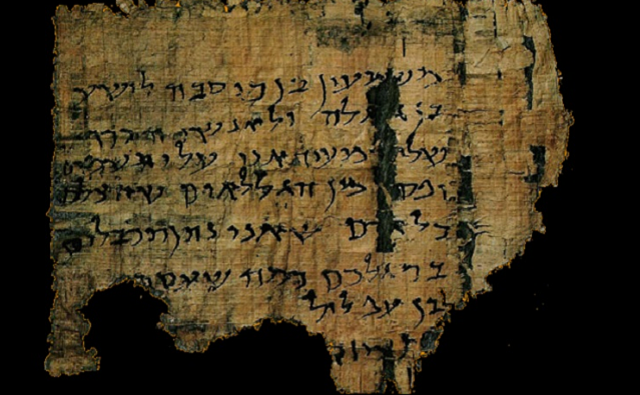 משמעון בן כוסבה לישוע
בן גלגלה ולאנשי הכרך
שלום מעיד אני עלי תשמים
יפסד מן הגללאים שהצלכם
כל אדם שאני נתן תכבלים
ברגלכם כמה שעסתי
לבן עפלול